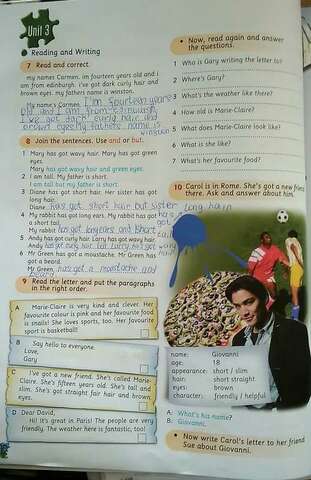 Unit 3
Reading and Writing
7 Read and correct.
my names Carmen. im fourteen years old and i
am from edinburgh. i've got dark curly hair and
brown eyes. my fathers name is winston.
My name's Carmen. I'm fourteen years
old and I am from
I've got dark curly hair and
brown eyes. My father's name is
winston
8 Join the sentences. Use and or but.
1 Mary has got wavy hair. Mary has got green
eyes.
Mary has got wavy hair and green eyes.
2 I am tall. My father is short.
I am tall but my father is short.
3 Diane has got short hair. Her sister has got
long hair.
Diane has got short hair but sister long hair
4 My rabbit has got long ears. My rabbit has got
a short tail.
My rabbit has got long ears and short
5 Andy has got curly hair. Larry has got wavy hair.
Andy has got curly hair but Larry
6 Mr Green has got a moustache. Mr Green has
got a beard.
Mr Green has got a moustache and
beard
9 Read the letter and put the paragraphs
in the right order.
A Marie-Claire is very kind and clever. Her
favourite colour is pink and her favourite food
is snails! She loves sports, too. Her favourite
sport is basketball!
B Say hello to everyone.
Love,
Gary
C I've got a new friend. She's called Marie-
Claire. She's fifteen years old. She's tall and
slim. She's got straight fair hair and brown
eyes.
D Dear David,
Hi! It's great in Paris! The people are very
friendly. The weather here is fantastic, too!
Now, read again and answer
the questions.
1 Who is Gary writing the letter to?
2 Where's Gary?
3 What's the weather like there?
4 How old is Marie-Claire?
5 What does Marie-Claire look like?
6 What is she like?
7 What's her favourite food?
10 Carol is in Rome. She's got a new friend
there. Ask and answer about him.
name: Giovanni
age: 18
appearance: short / slim
hair: short straight
eyes: brown
character: friendly / helpful
A: What's his name?
B: Giovanni.
Now write Carol's letter to her friend
Sue about Giovanni.